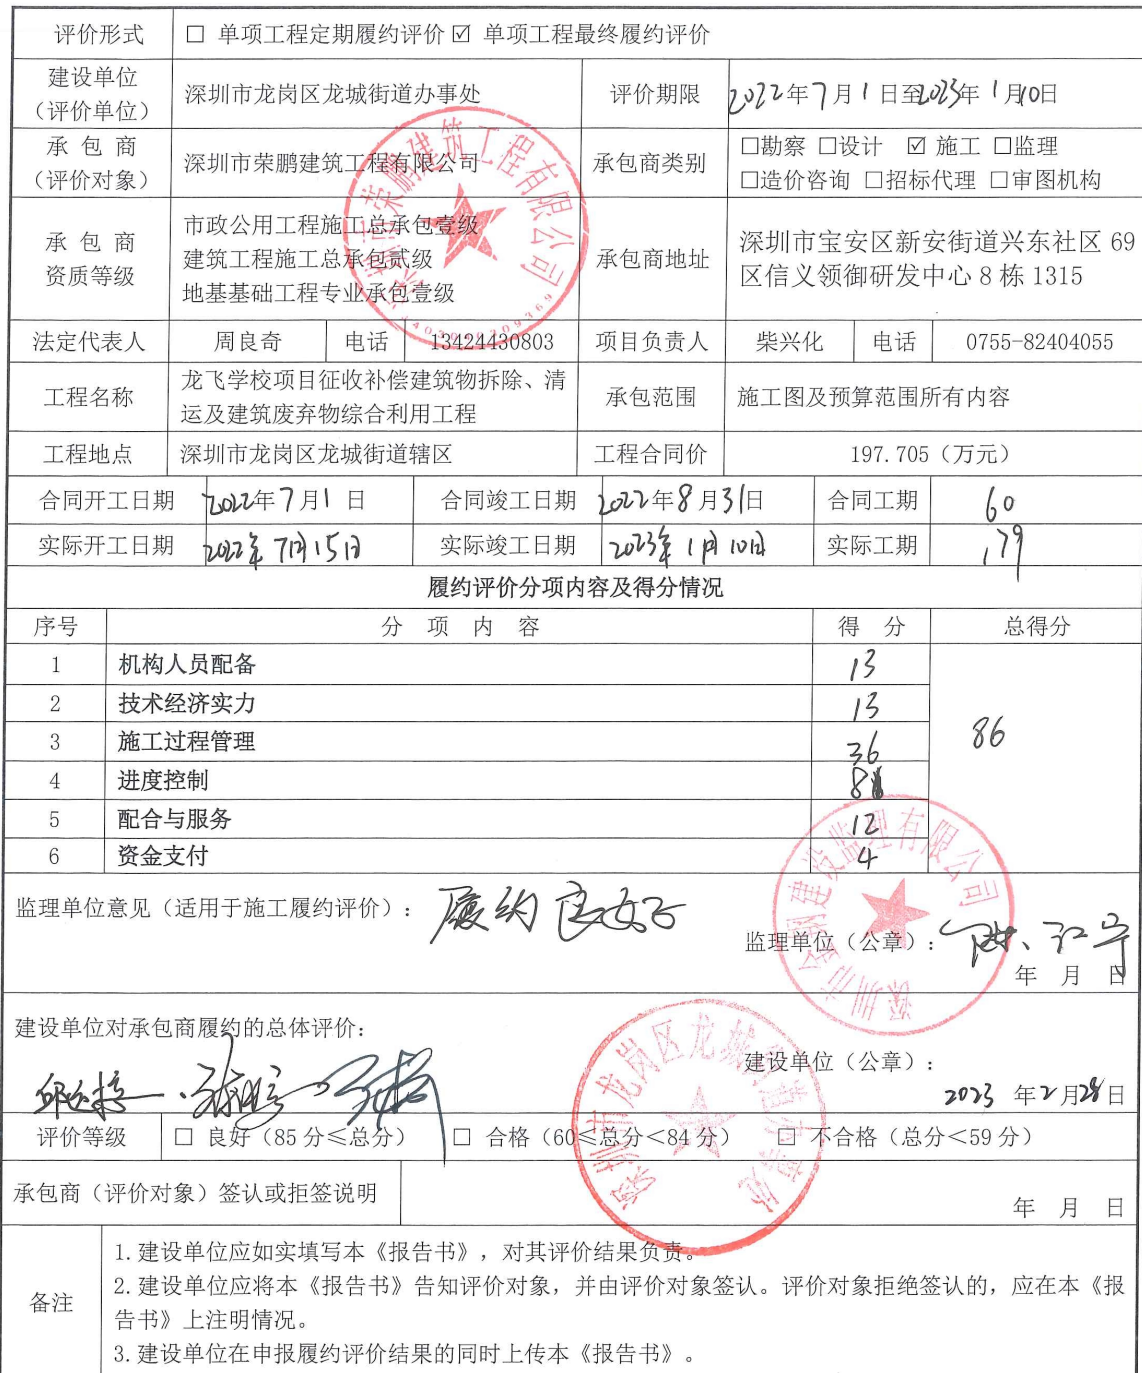 评价形式 □ 单项工程定期履约评价 ☑ 单项工程最终履约评价
建设单位
（评价单位） 深圳市龙岗区龙城街道办事处 评价期限 2022年7月1日至2023年1月10日
承包商
（评价对象） 深圳市荣鹏建筑工程有限公司 承包商类别 □勘察 □设计 ☑ 施工 □监理
□造价咨询 □招标代理 □审图机构
承包商
资质等级 市政公用工程施工总承包壹级
建筑工程施工总承包贰级
地基基础工程专业承包壹级
承包商地址 深圳市宝安区新安街道兴东社区 69
区信义领御研发中心 8 栋 1315
法定代表人 周良奇 电话 13424430803 项目负责人 柴兴化 电话 0755-82404055
工程名称 龙飞学校项目征收补偿建筑物拆除、清
运及建筑废弃物综合利用工程 承包范围 施工图及预算范围所有内容
工程地点 深圳市龙岗区龙城街道辖区 工程合同价 197.705（万元）
合同开工日期 2022年7月1日 合同竣工日期 2022年8月31日 合同工期 60
实际开工日期 2022年7月15日 实际竣工日期 2023年1月10日 实际工期 179
履约评价分项内容及得分情况
序号 分项内容 得分 总得分
1 机构人员配备 13 86
2 技术经济实力 13
3 施工过程管理 36
4 进度控制 8
5 配合与服务 12
6 资金支付 4
监理单位意见（适用于施工履约评价）： 履约良好
监理单位（公章）：
年 月 日
深圳市金钢建设监理有限公司
建设单位对承包商履约的总体评价：
建设单位（公章）：
2023 年2月28日
深圳市龙岗区龙城街道办事处
评价等级 □ 良好（85 分≤总分） □ 合格（60≤总分＜84 分） □ 不合格（总分＜59 分）
承包商（评价对象）签认或拒签说明 年 月 日
备注
1.建设单位应如实填写本《报告书》，对其评价结果负责。
2.建设单位应将本《报告书》告知评价对象，并由评价对象签认。评价对象拒绝签认的，应在本《报
告书》上注明情况。
3.建设单位在申报履约评价结果的同时上传本《报告书》。